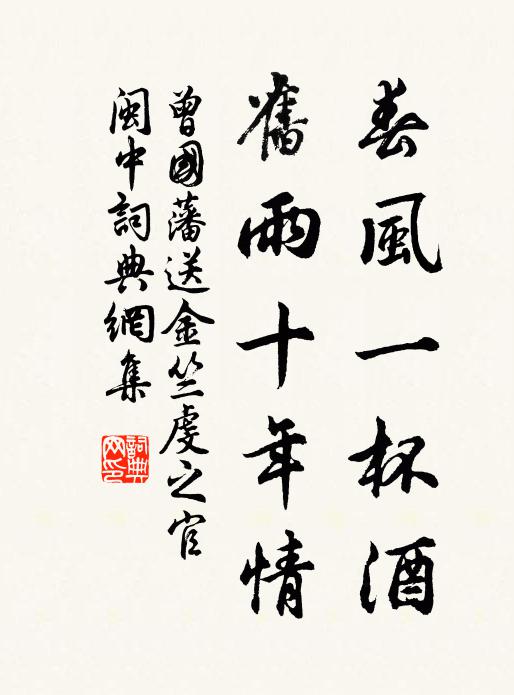 春風一杯酒
舊雨十年情
曾國藩送金竺虔之官
閩中詞典網集
詞典网印